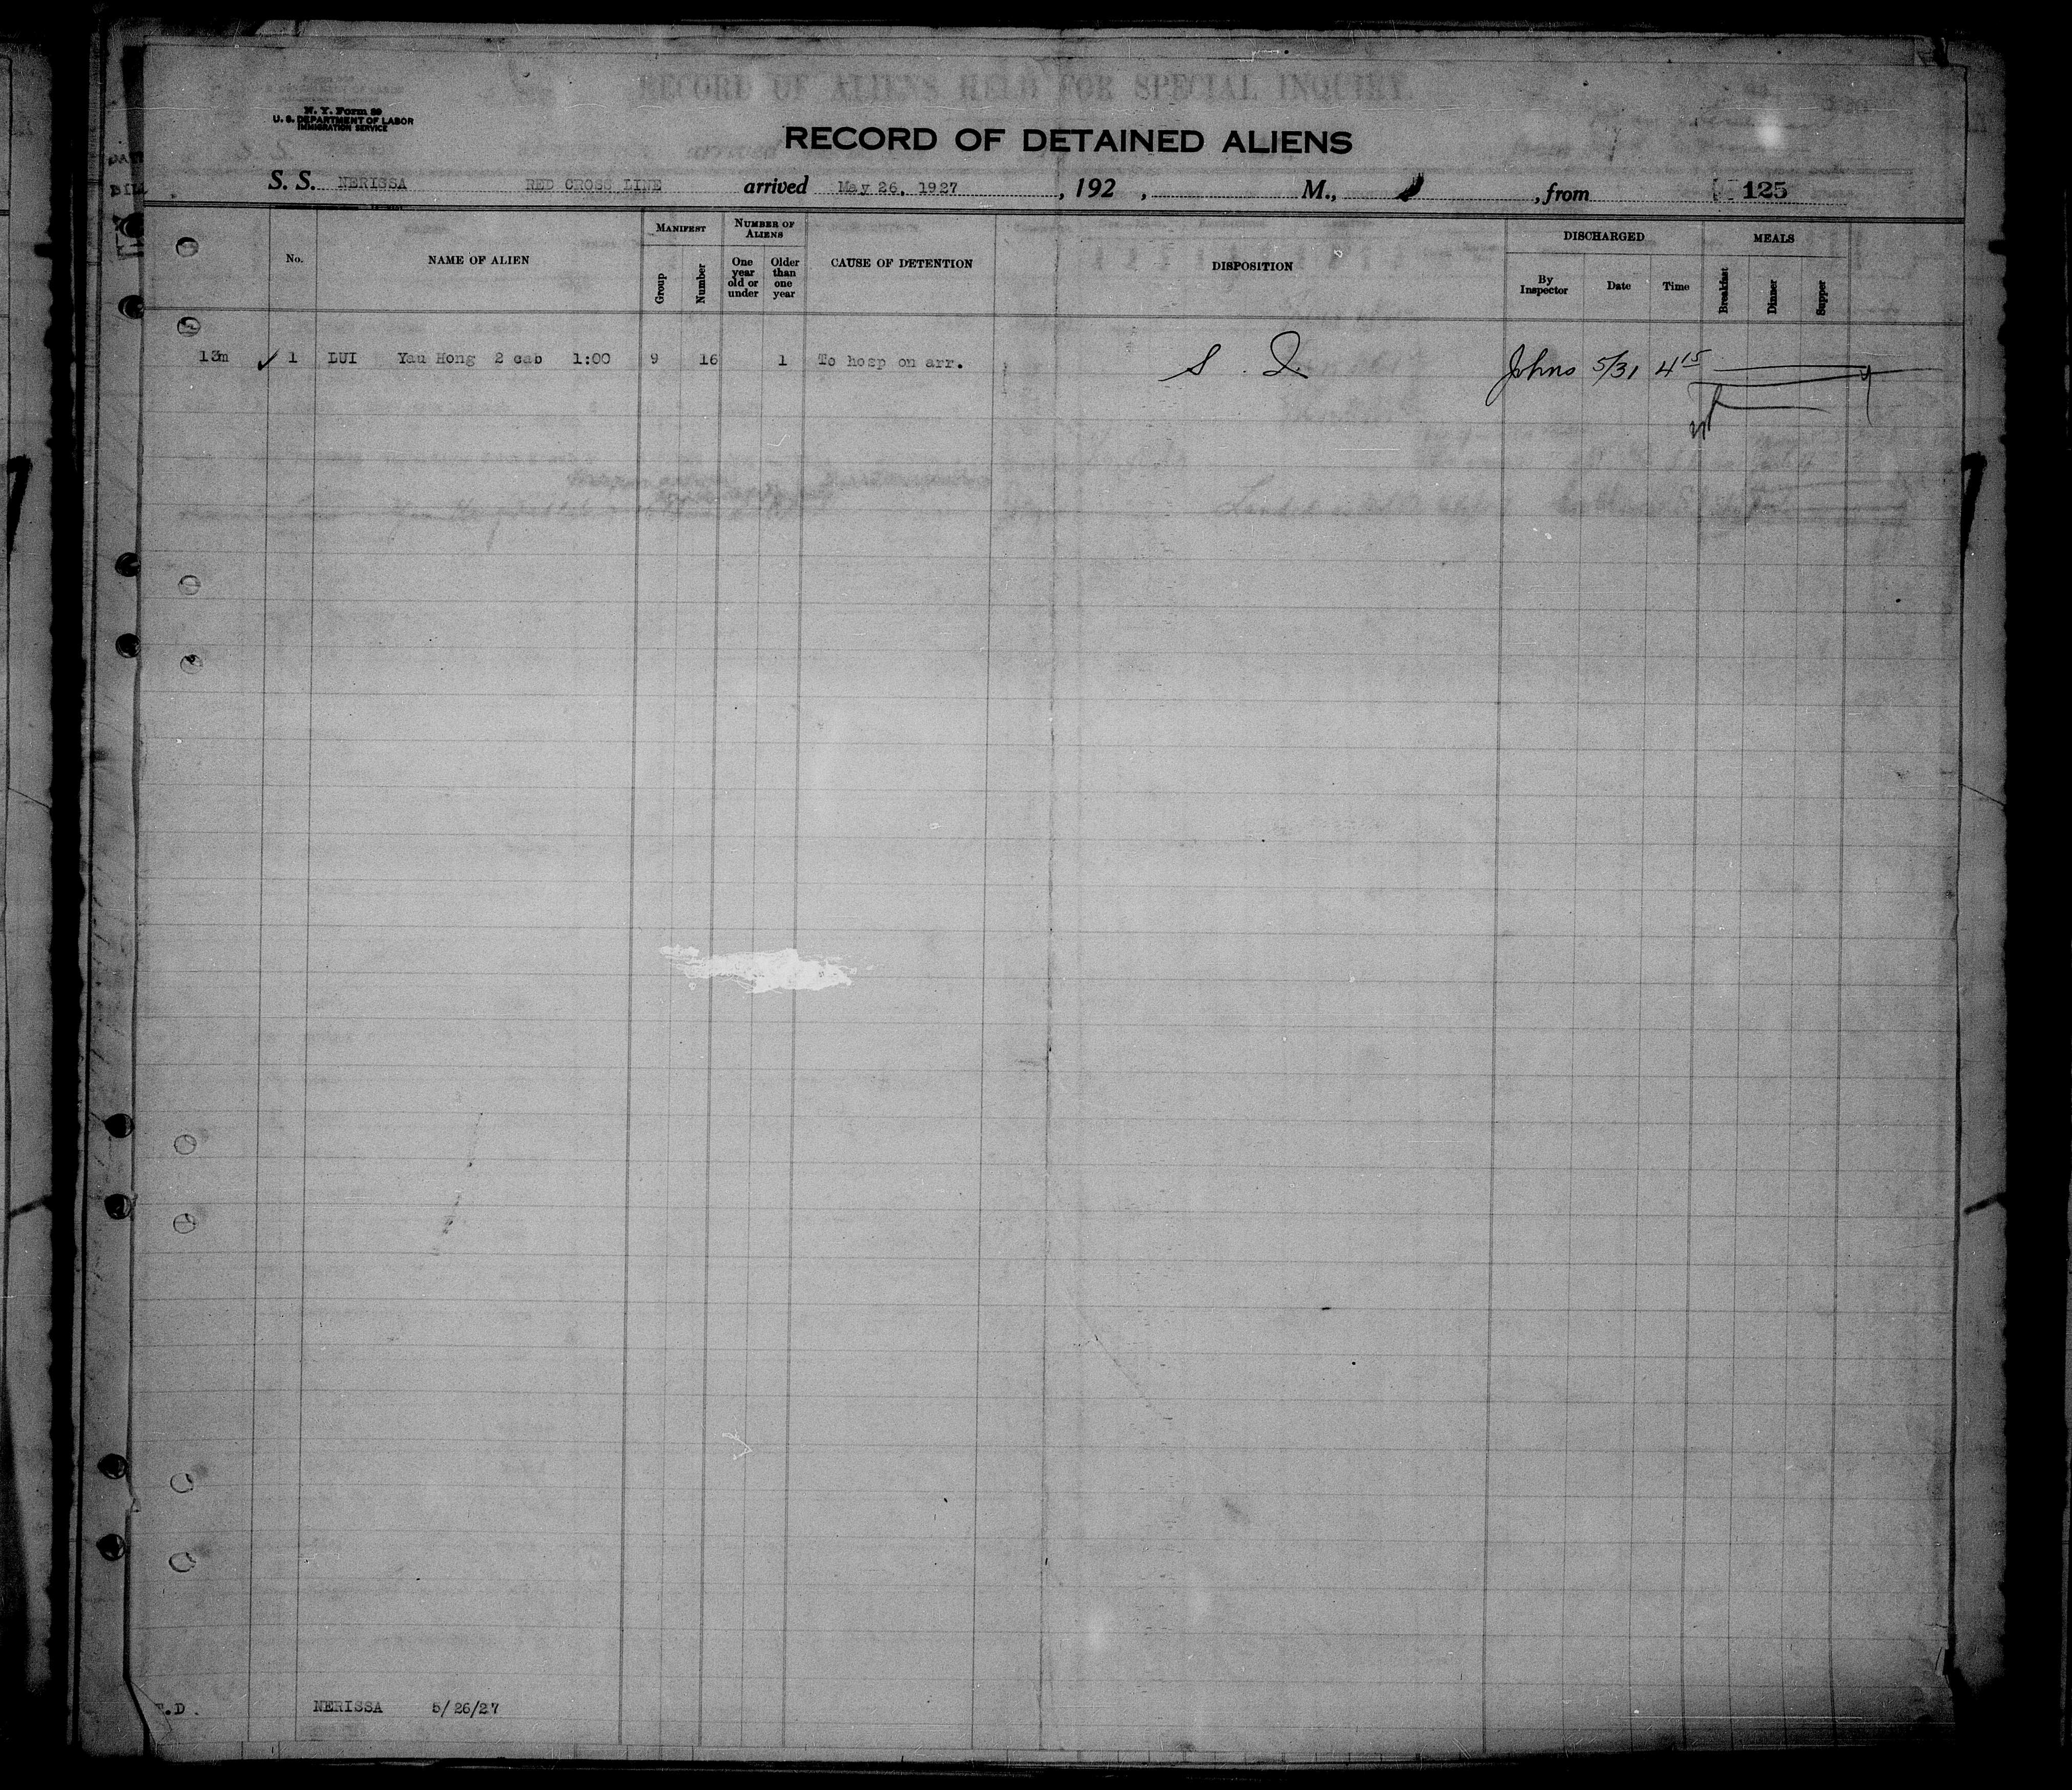 RECORD OF ALIENS HELD FOR SPECIAL INQUIRY
N. Y. Form 89
U. S. DEPARTMENT OF LABOR
IMMIGRATION SERVICE
RECORD OF DETAINED ALIENS
S. S. NERISSA RED CROSS LINE arrived May 26, 1927, 192 , M., , from 125
No. NAME OF ALIEN MANIFEST Group Number NUMBER OF ALIENS One year old or under Older than one year CAUSE OF DETENTION DISPOSITION DISCHARGED By Inspector Date Time MEALS Breakfast Dinner Supper
13m ✓ 1 LUI Yau Hong 2 cab 1:00 9 16 1 To hosp on arr. S. I. Johns 5/31 4 15
.D. NERISSA 5/26/27